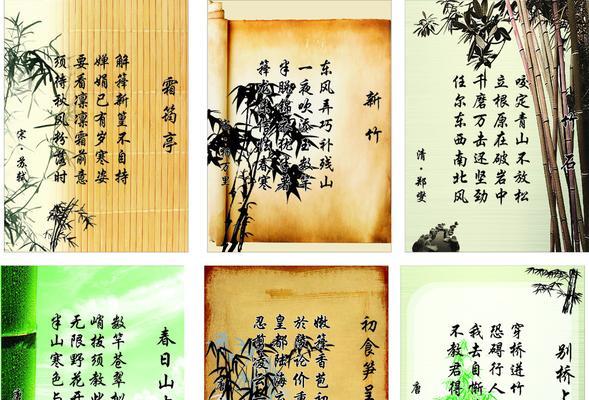 霜筠亭
解箨新篁不自持
婵娟已有岁寒姿
要看凛凛霜前意
须待秋风粉落时
宋·苏轼
新竹
东风弄巧补残山
一夜吹添玉数竿
半脱锦
箨龙 春寒
万里
竹石
咬定青山不放松
立根原在破岩中
千磨万击还坚劲
任尔东西南北风
清·郑燮
春日山
数竿苍翠拟
峭拔须教此
无限野花开
半山寒色与
唐
初食笋呈
嫩箨香苞初
於陵论价重
皇都陆海
忍剪凌
别桥上
穿桥迸竹
恐碍行人
我去自惭
不教君得
唐